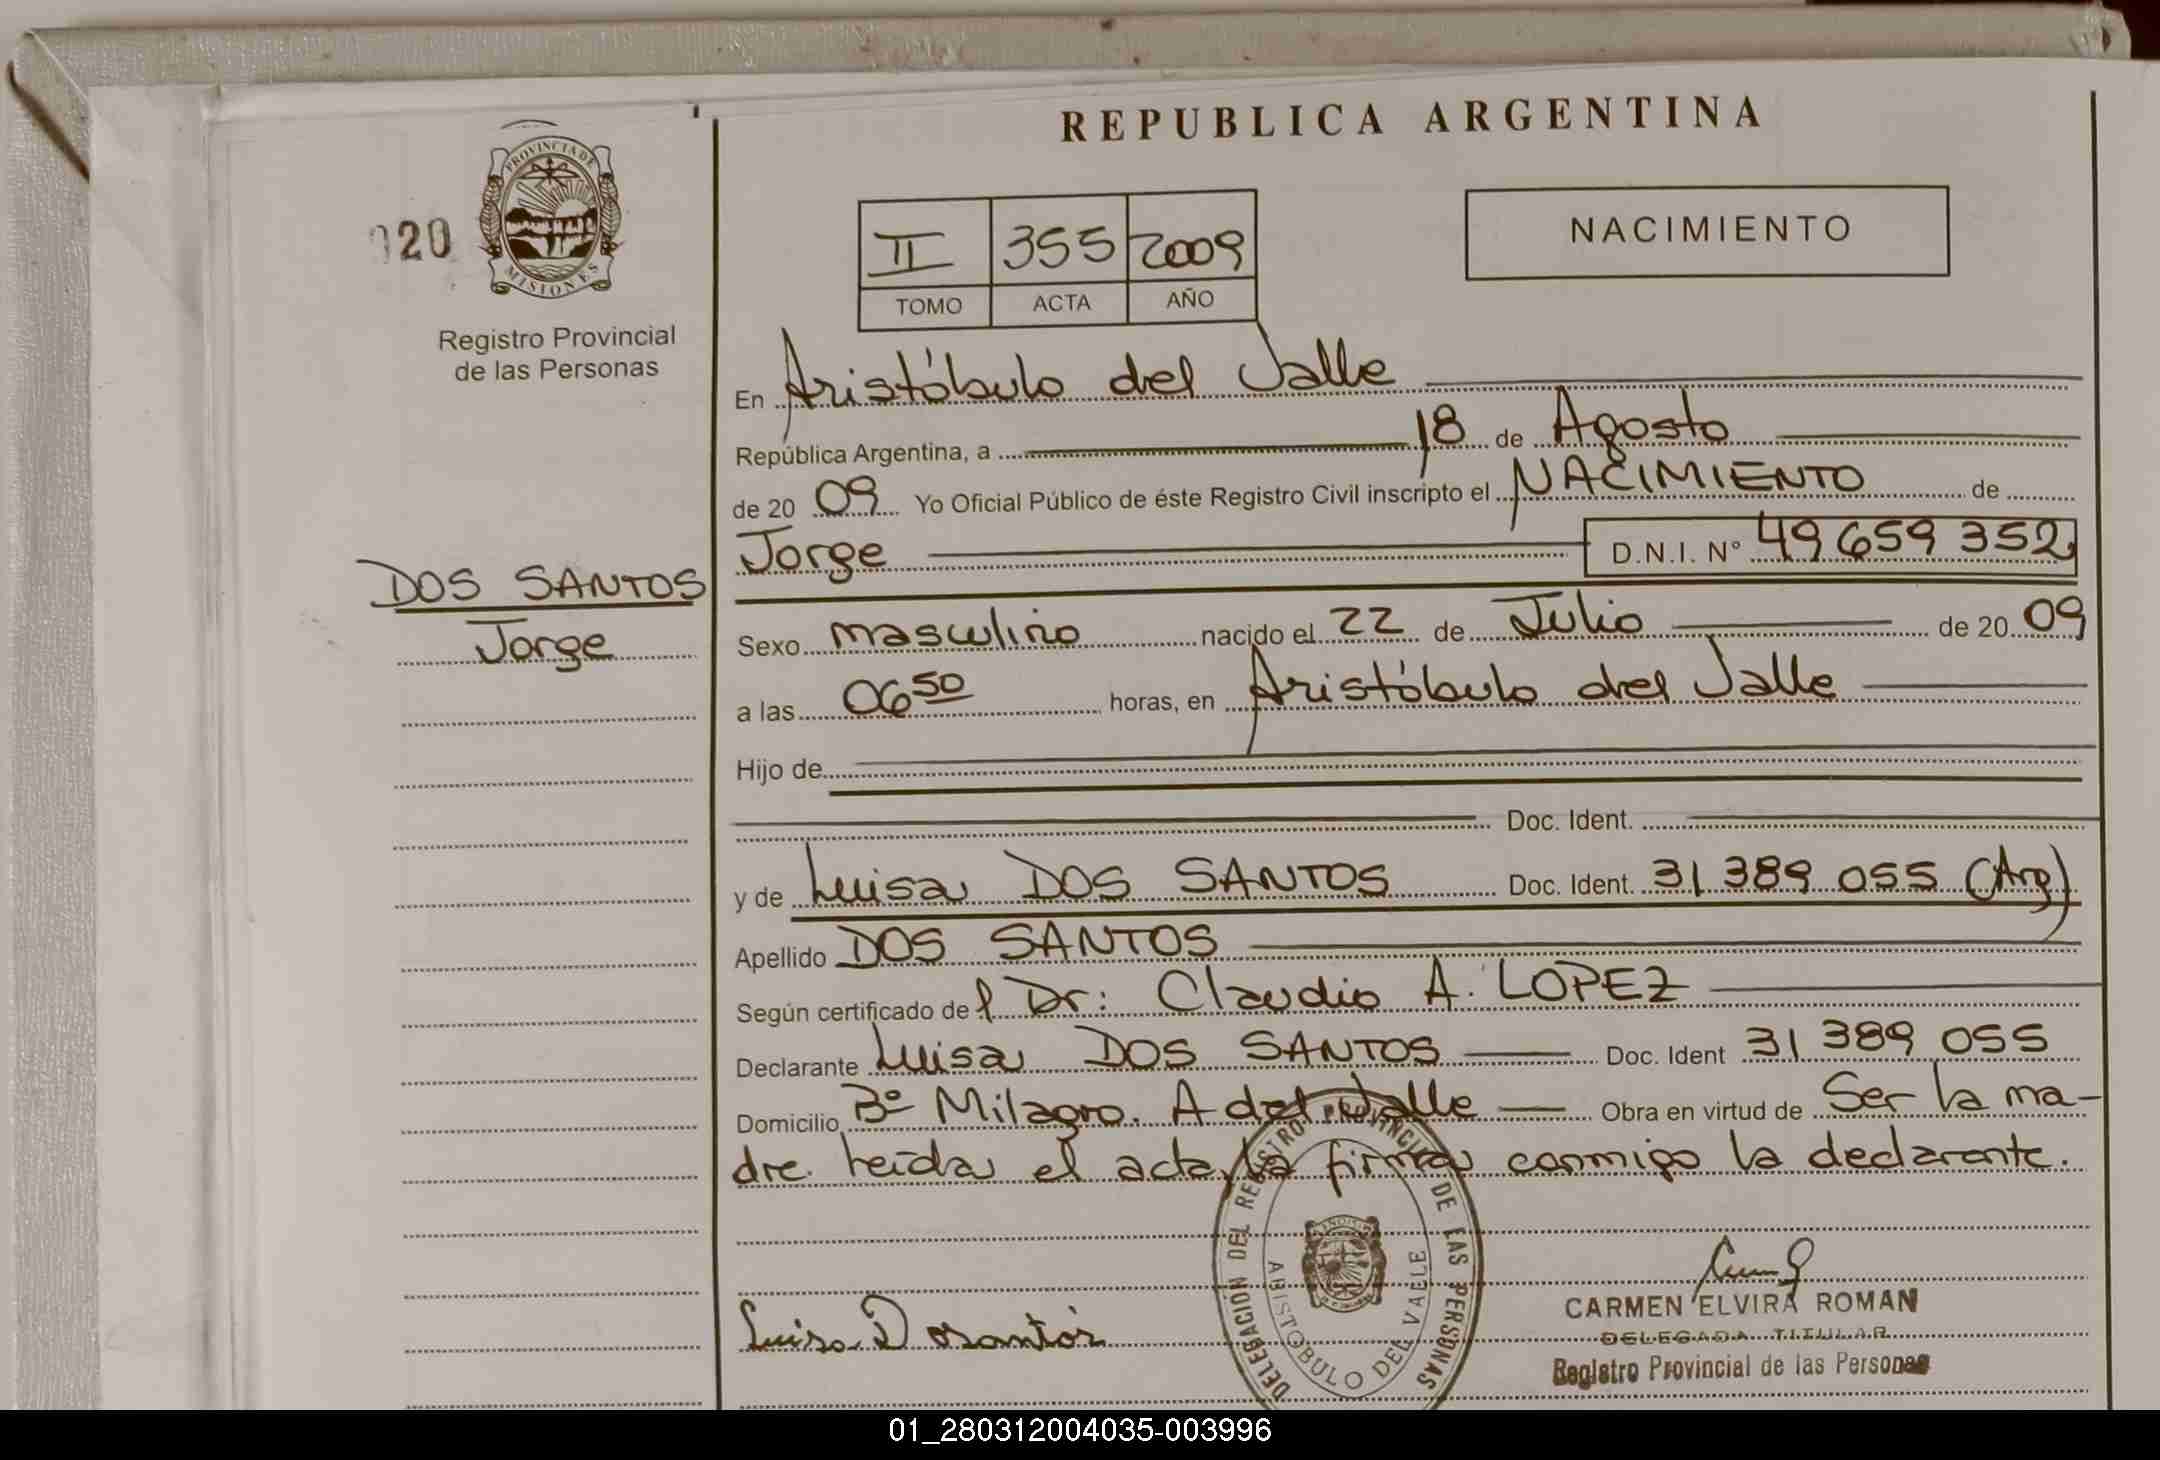 REPUBLICA ARGENTINA
PROVINCIA DE MISIONES
020
II 355 2009
TOMO ACTA AÑO
NACIMIENTO
Registro Provincial
de las Personas
DOS SANTOS
Jorge
En Aristóbulo del Valle
República Argentina, a 18 de Agosto
de 20 09 Yo Oficial Público de éste Registro Civil inscripto el NACIMIENTO de
Jorge D.N.I. N° 49 659 352
Sexo masculino nacido el 22 de Julio de 20 09
a las 06 50 horas, en Aristóbulo del Valle
Hijo de
Doc. Ident.
y de Luisa DOS SANTOS Doc. Ident. 31 389 055 (Arg)
Apellido DOS SANTOS
Según certificado del Dr: Claudio A. LOPEZ
Declarante Luisa DOS SANTOS Doc. Ident 31 389 055
Domicilio B° Milagro. A del Valle Obra en virtud de Ser la ma-
dre. Leída el acta, la firma conmigo la declarante.
DELEGACION DEL REGISTRO PROVINCIAL DE LAS PERSONAS
ARISTOBULO DEL VALLE
Luisa Dosantos
CARMEN ELVIRA ROMAN
DELEGADA TITULAR
Registro Provincial de las Personas
01_280312004035-003996